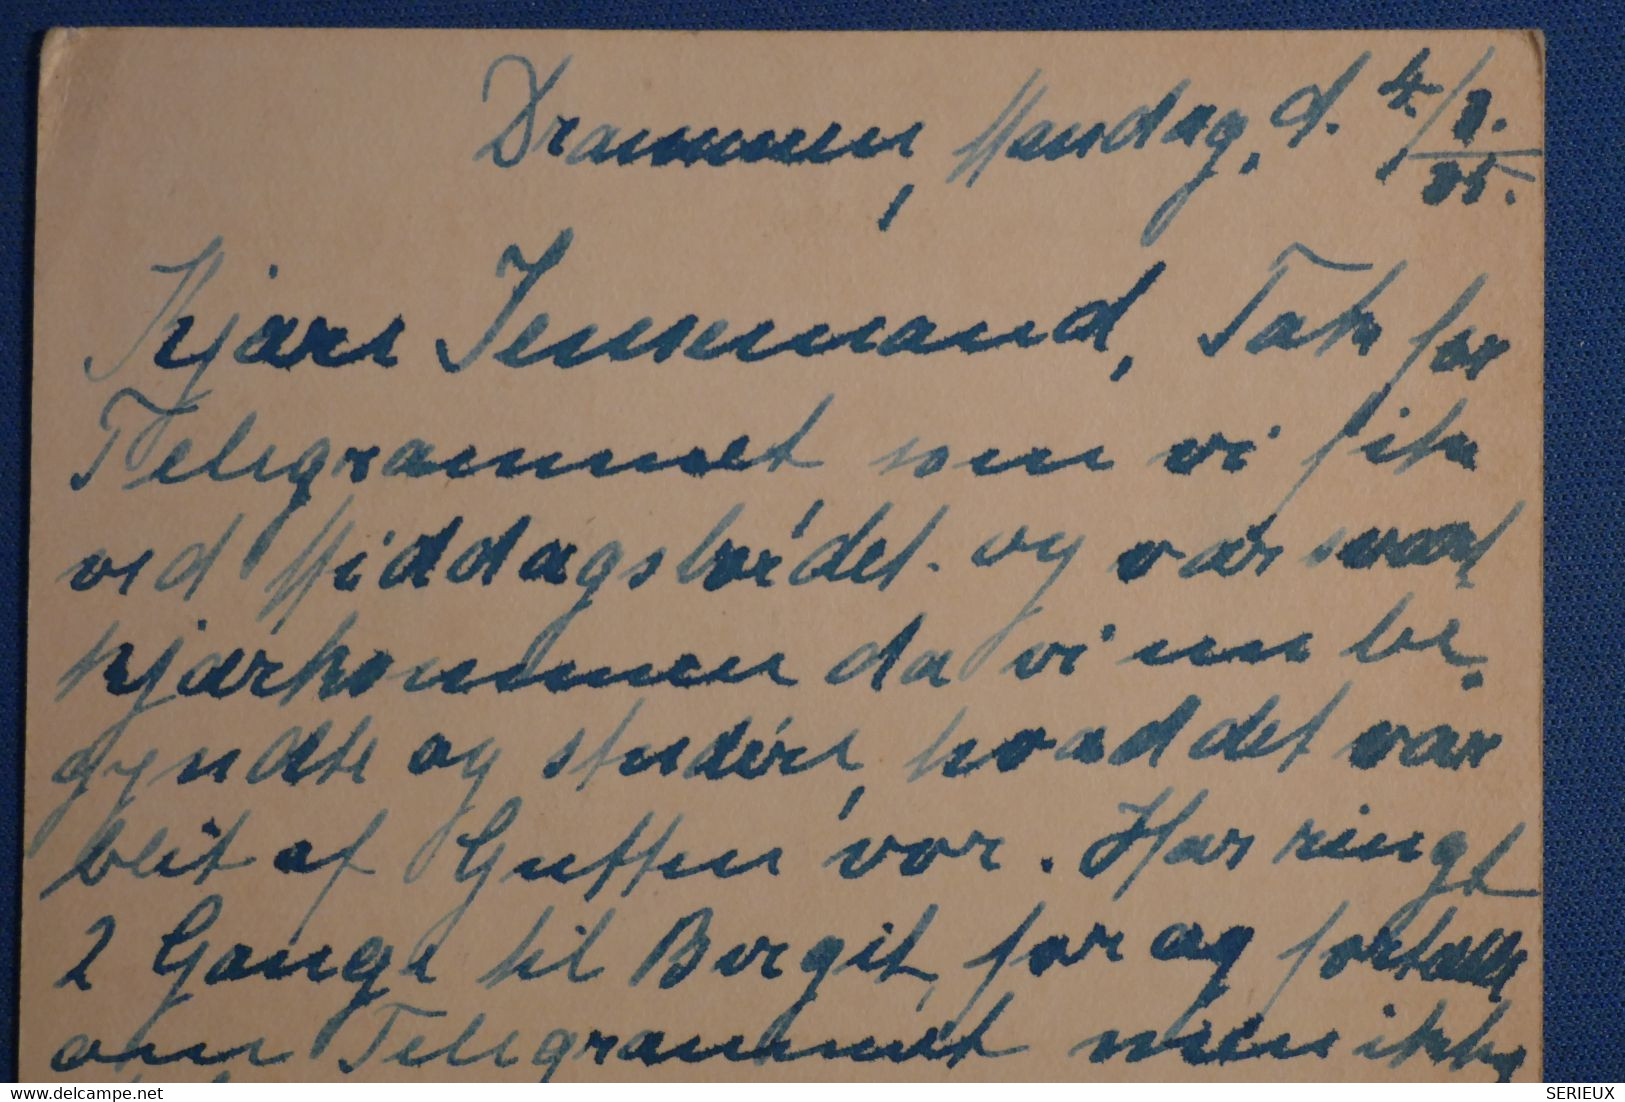 Drammen, Mandag, d. 4./3. 35.
Kjære Jensemand, Tak for
Telegrammet som vi fik
ved Middagsbordet. og var svært
kjærkommen da vi nu be-
gyndte og studere, hvad det var
blit af Gutten vor. Har ringt
2 Gange til Birgit, for og fortælle
om Telegrammet men ikke
www.delcampe.net
SERIEUX